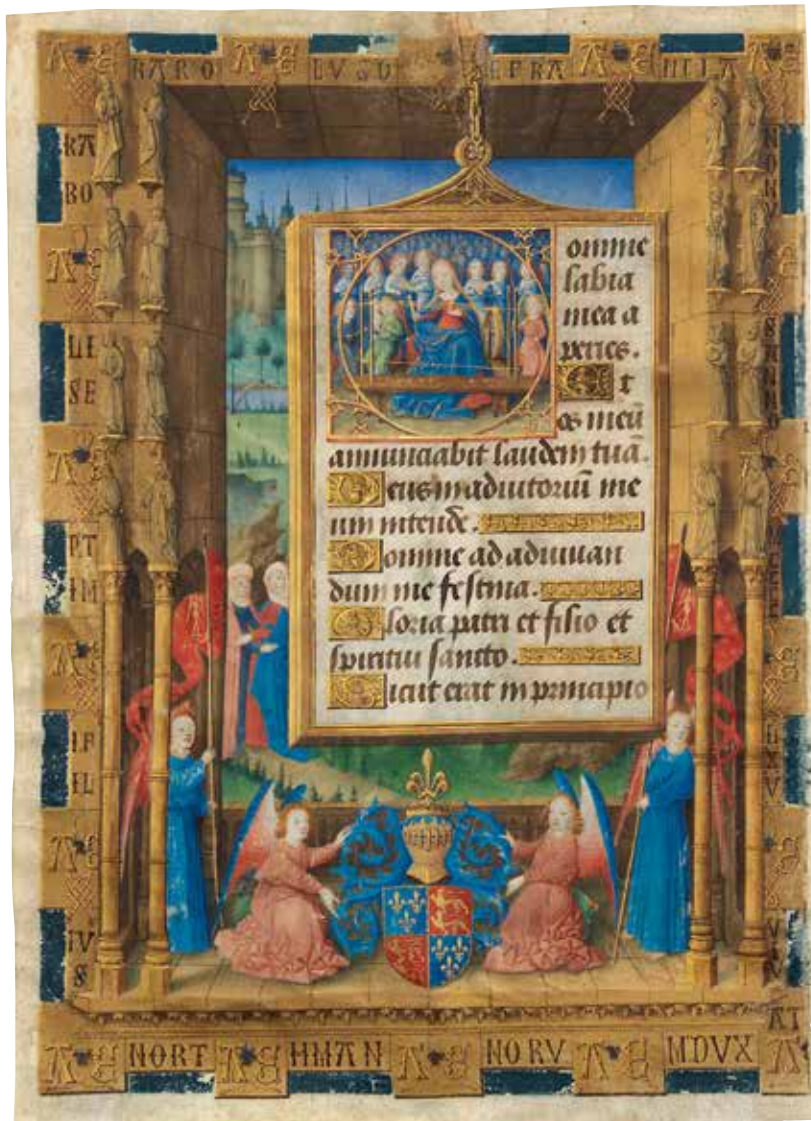 KARO LVSD EFRA NCIA
KA
RO
LI
SE
PT
IM
IF
IL
IV
S
omine
labia
mea a
peries.
Et
os meū
annunciabit laudem tuā.
Deus in adiutoriū me
um intende.
Domine ad adiuuan
dum me festina.
Gloria patri et filio et
spiritui sancto.
Sicut erat in principio
NORT HMAN NORV MDVX